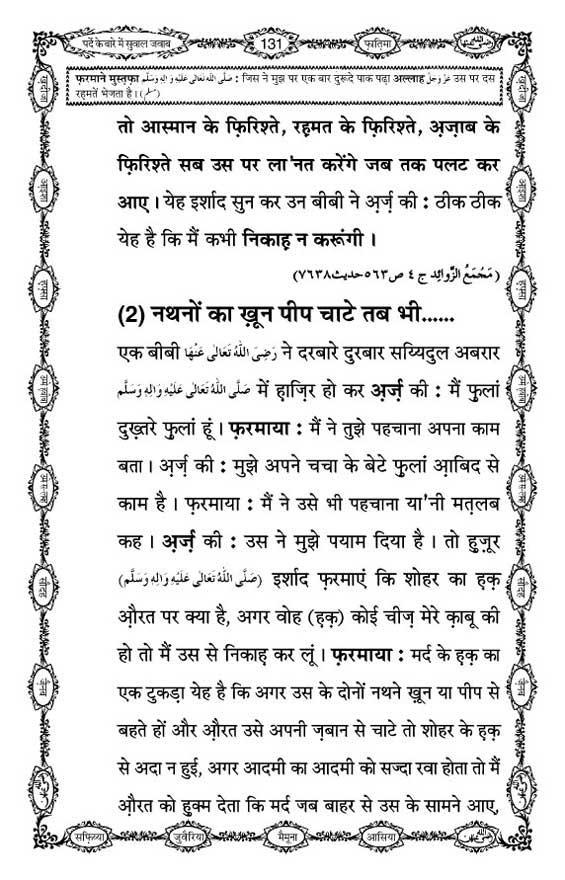 पर्दे के बारे में सुवाल जवाब
131
फ़ातिमा
फ़रमाने मुस्तफ़ा صَلَّى اللهُ تَعَالٰى عَلَيْهِ وَاٰلِهٖ وَسَلَّم : जिस ने मुझ पर एक बार दुरूदे पाक पढ़ा अल्लाह عَزَّوَجَلَّ उस पर दस
रहमतें भेजता है। (مسلم)
तो आस्मान के फ़िरिश्ते, रह़मत के फ़िरिश्ते, अ़ज़ाब के
फ़िरिश्ते सब उस पर ला'नत करेंगे जब तक पलट कर
आए। येह इर्शाद सुन कर उन बीबी ने अ़र्ज़ की : ठीक ठीक
येह है कि मैं कभी निकाह़ न करूंगी।
(مَجْمَعُ الزَّوَائِد ج ٤ ص٥٦٣ حدیث ٧٦٣٨)
(2) नथनों का ख़ून पीप चाटे तब भी......
एक बीबी رَضِىَ اللهُ تَعَالٰى عَنْهَا ने दरबारे दुरबार सय्यिदुल अबरार
صَلَّى اللهُ تَعَالٰى عَلَيْهِ وَاٰلِهٖ وَسَلَّم में ह़ाज़िर हो कर अ़र्ज़ की : मैं फुलां
दुख़्तरे फुलां हूं। फ़रमाया : मैं ने तुझे पहचाना अपना काम
बता। अ़र्ज़ की : मुझे अपने चचा के बेटे फुलां आ़बिद से
काम है। फ़रमाया : मैं ने उसे भी पहचाना या'नी मत़लब
कह। अ़र्ज़ की : उस ने मुझे पयाम दिया है। तो हुज़ूर
(صَلَّى اللهُ تَعَالٰى عَلَيْهِ وَاٰلِهٖ وَسَلَّم) इर्शाद फ़रमाएं कि शोहर का ह़क़
औ़रत पर क्या है, अगर वोह (ह़क़) कोई चीज़ मेरे क़ाबू की
हो तो मैं उस से निकाह़ कर लूं। फ़रमाया : मर्द के ह़क़ का
एक टुकड़ा येह है कि अगर उस के दोनों नथने ख़ून या पीप से
बहते हों और औ़रत उसे अपनी ज़बान से चाटे तो शोहर के ह़क़
से अदा न हुई, अगर आदमी का आदमी को सज्दा रवा होता तो मैं
औ़रत को हुक्म देता कि मर्द जब बाहर से उस के सामने आए,
सफ़िय्या
जुवैरिया
मैमूना
आसिया